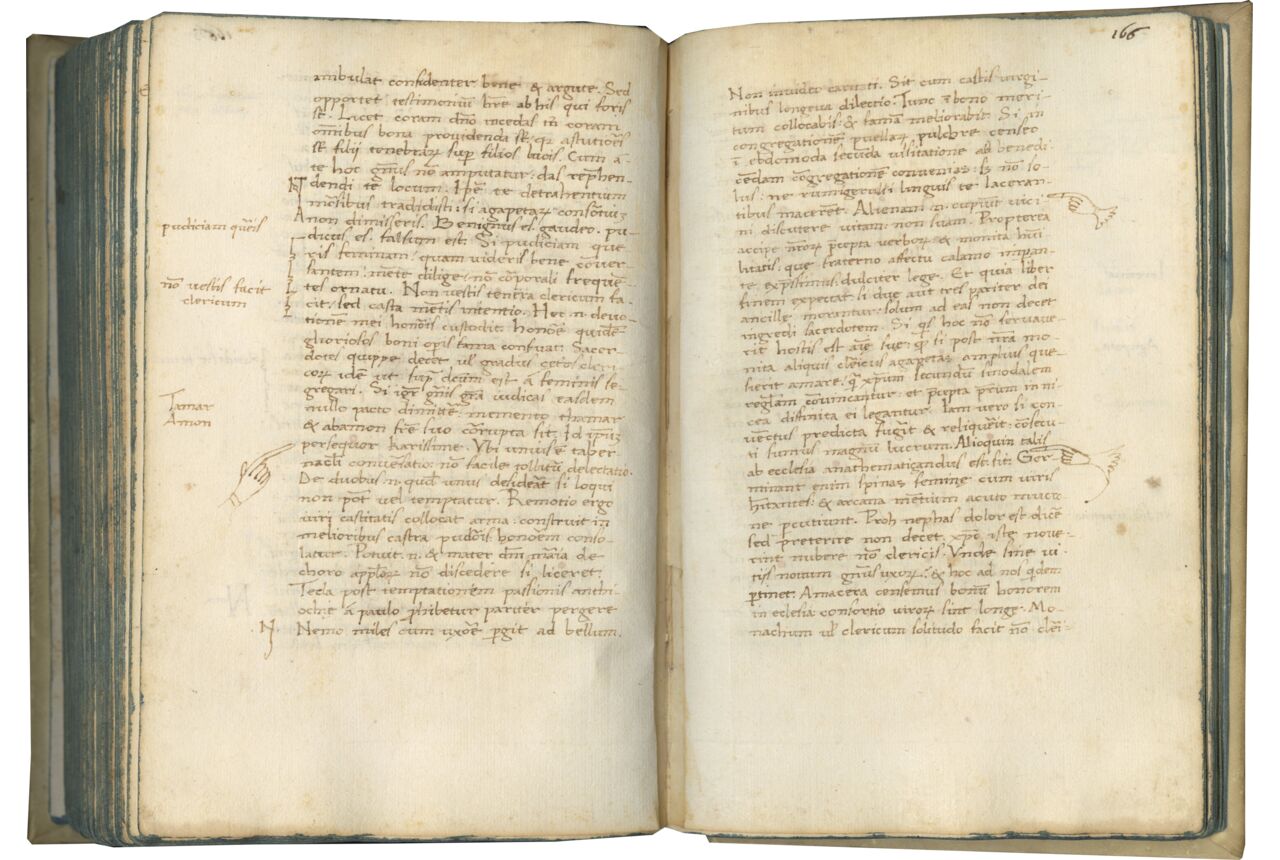 ambulat confidenter bene & argute. Sed
opportet testimoniũ hr̃e ab his qui foris
st̃. Licet coram dño incedas tñ coram
om̃ibus bona providenda st̃: qr̃ astutiores
st̃ filii tenebrarꝝ sup̃ filios lucis. Cum a
te hoc gñus nõ amputatur: das rephen-
dendi te locum. Ip̃e te detrahentium
morsibus tradidisti: si agapetarꝝ consortiuꝫ
non dimisseris. Benignus es, gaudeo. pu-
dicus es, falsum est. Si pudiciam que
pudiciam queris
ris feminam, quam videris bene cõver-
santem: mẽte dilige, nõ corporali freque-
nõ vestis facit
clericum
tes ornatu. Non vestis tenera clericum fa-
cit, sed casta mẽtis intentio. Hec .n. devo-
tionẽ mei honõis custodit:
glioriosos boni opis fama
dotes quippe decet ul' gradus
corꝝ idẽ ut sup̃ dcũm est a feminis se-
gregari. Si igr̃ gñis gr̃a iudicas easdem
Tamar
Amon
nullo pacto dimitte: memento thamar
& ab amon fr̃e suo corrupta sit. Id ipuꝫ
persequor karissime. Ubi unus ẽ taper-
nacli conversatio: nõ facile pollitur delectatio.
De duobus .n. quod unus desiderat si loqui
non pot̃ vel temptatur. Remotio ergo
viri castitatis collocat arma: construit in
melioribus castra pudõis: honõem conso-
latur. Potuit .n. & mater dm̃i maria de
choro apploꝝ nõ discedere si liceret.
Tecla post temptationem passionis anthi-
ochie a paulo p̃hibetur pariter pergere
N. Nemo miles cum uxõe pgit ad bellum.
166
Non invideo caritati. Sit cum castis virgi-
nibus longeva dilectio. Tunc ĩ bono meri-
tum collocabis: & famã meliorabis. Si in
congregationẽ puellarꝝ, pulchre censeo
ĩ ebdomoda secuda visitatione ad benedi
cẽdam cõgregationẽ convenias: is nõ so-
lus: ne rumigeruli linguis te laceran-
tibus maceret. Alienam .n. cupiut vici
ni discutere vitam non suam. Propterea
accipe nr̃oꝝ p̃cepta verboꝝ & monita hũi
litatis: que fraterno affectu calamo
te, expssimus: dulciter lege. Et quia liber
finem expectat si due aut tres pariter dei
ancille morantur: solum ad eas non decet
ingredi sacerdotem. Si qs hoc nõ servave-
rit hostis est aĩe sue: qr̃ si post nr̃a mo-
nita aliquis clericus agapetas amplius que-
sierit amare, secundũ sinodalem
reglam & p̃cepta in ni-
cea diffinita ei legantur. Iam vero si con-
vẽctus predicta fugit & reliquerit: cõsecu-
ti sumus magnũ lucrum. Alioquin talis
ab ecclesia anathematicandus est: sit. Ger-
minant enim spinas femine cum viris
hitantes: & arcana mẽtium acuto mucro-
ne pcutiunt. Proh nephas dolor est dicẽ
sed preterire non decet, xpc̃ iste nove-
rint nubere nõ clericis. Unde sine vi
tijs novum gñus uxorꝝ? & hoc ad nos qdem
ptinet. Amacera censemus bonũ bonorem
in eclesia: consortio virorꝝ sint longe. Mo-
nachum ul' clericum solitudo facit nõ clei-